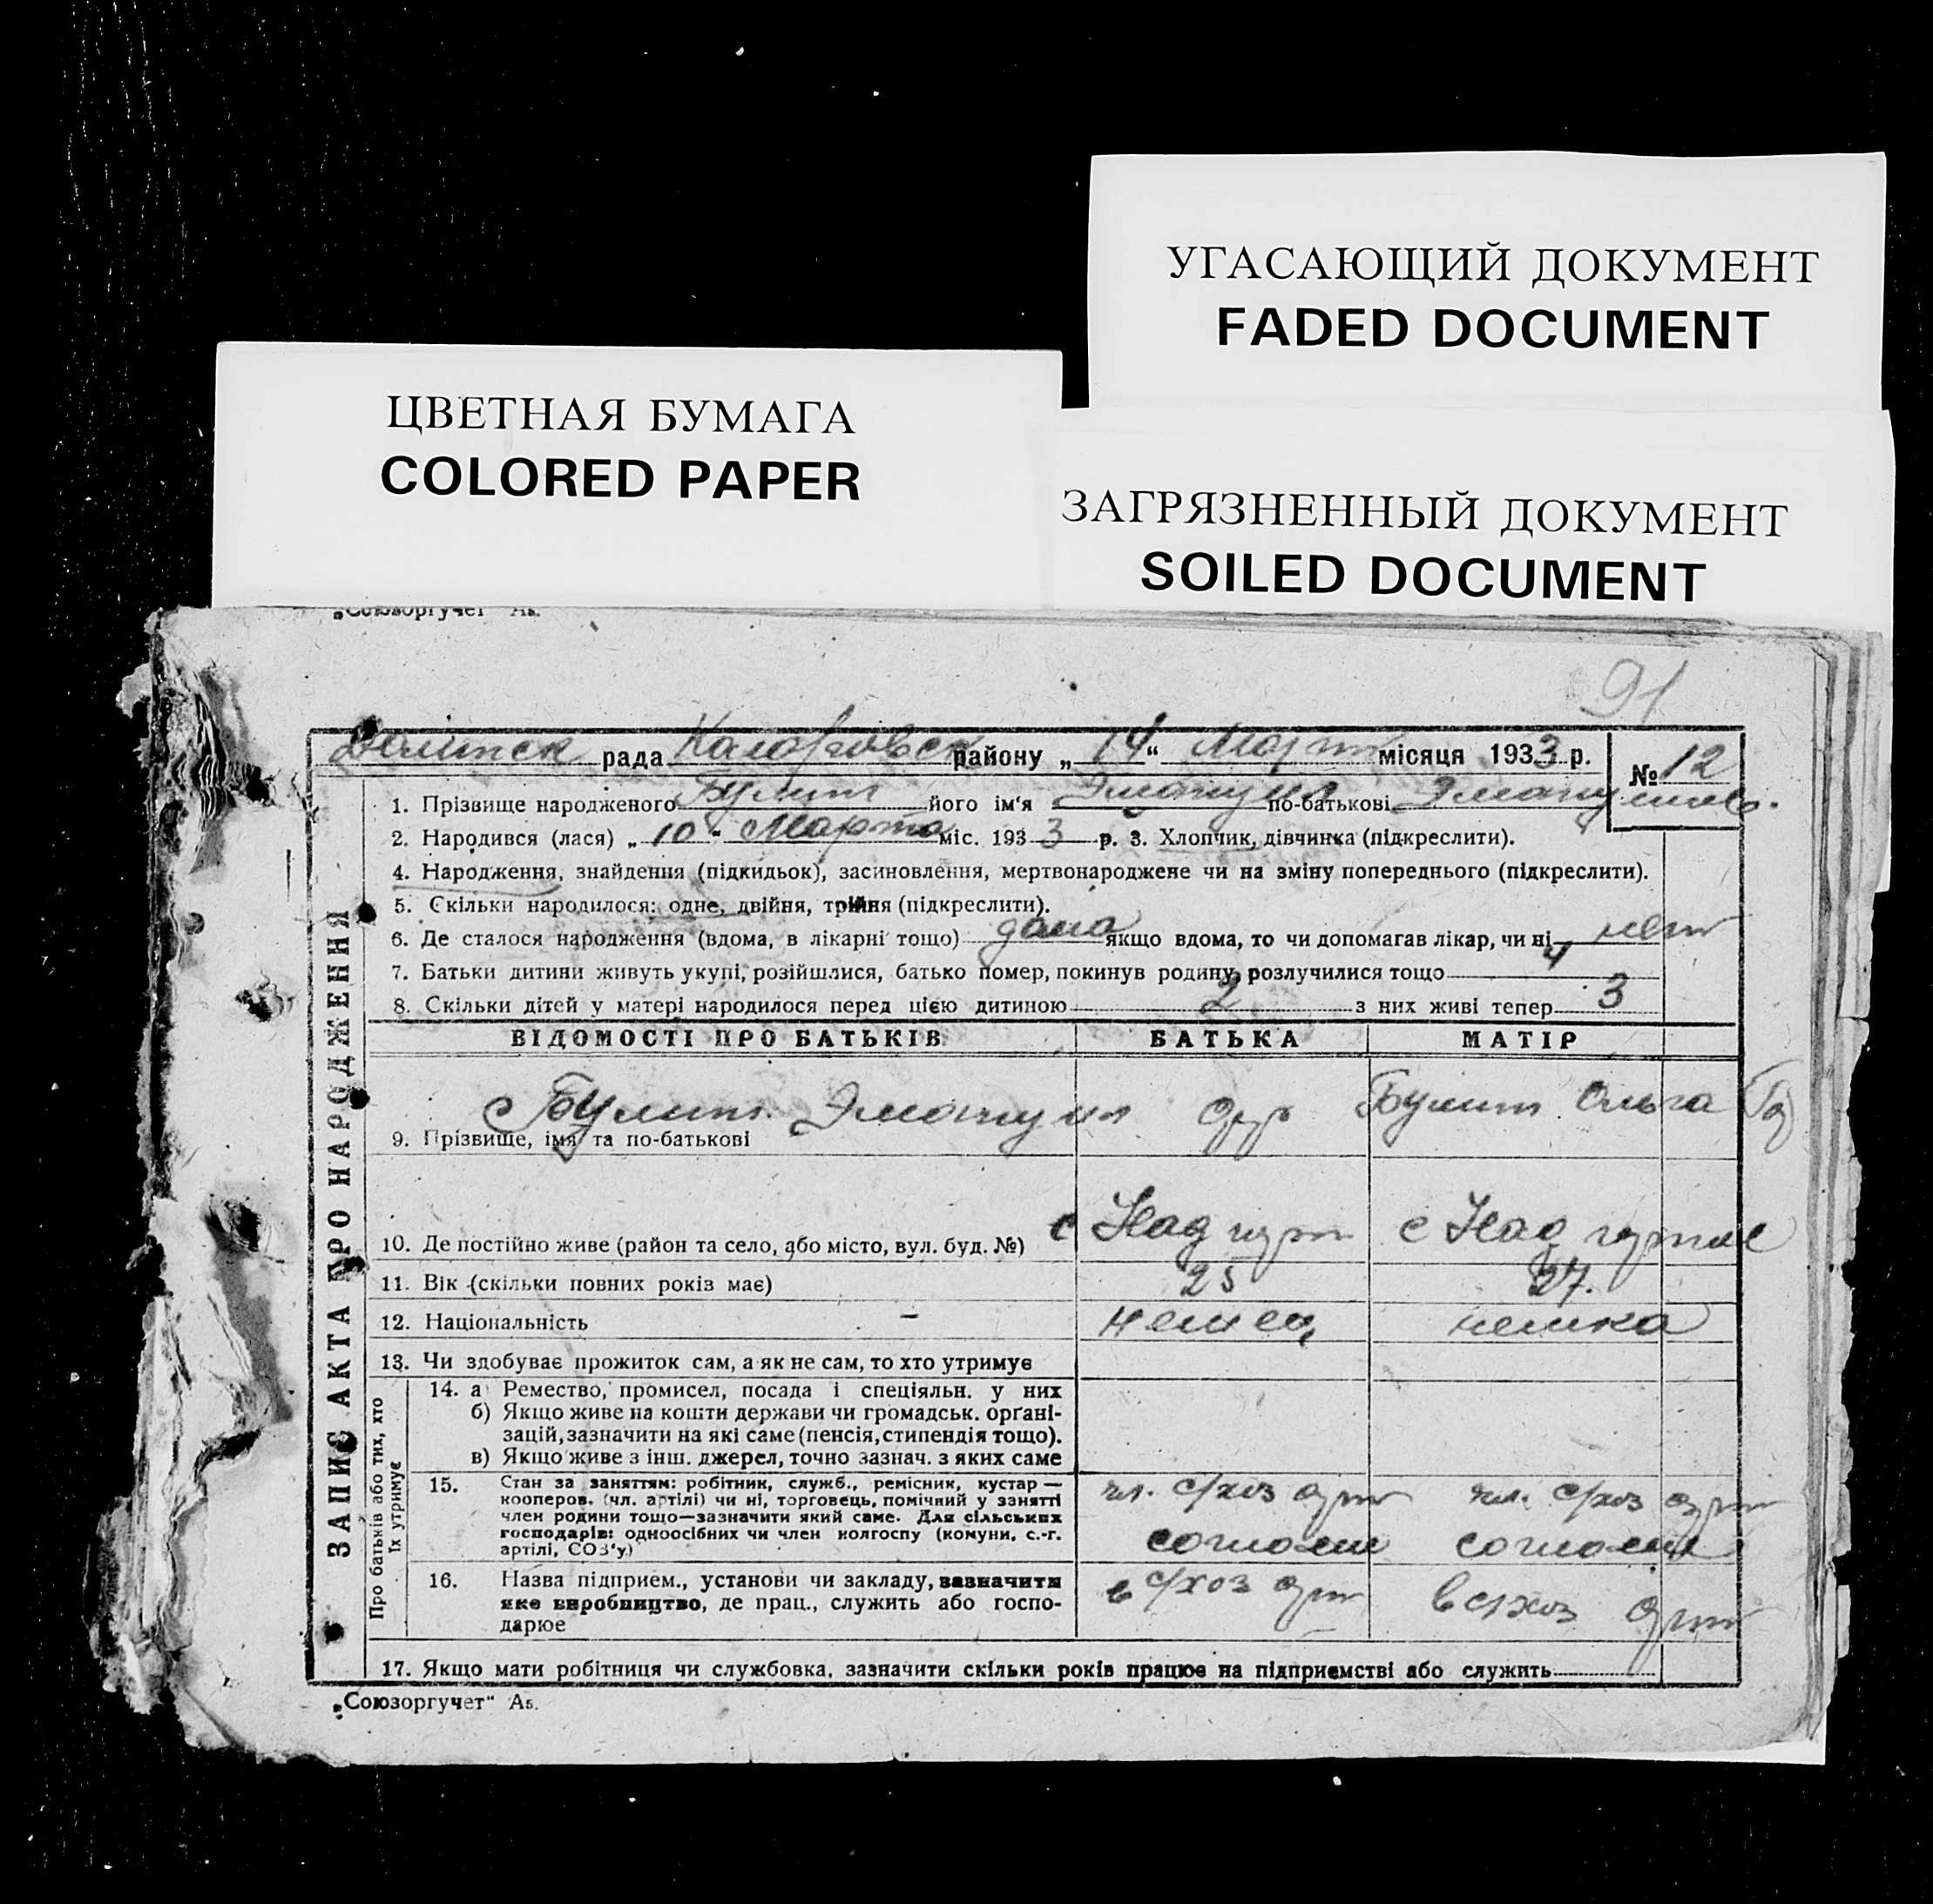 УГАСАЮЩИЙ ДОКУМЕНТ
FADED DOCUMENT
ЦВЕТНАЯ БУМАГА
COLORED PAPER
ЗАГРЯЗНЕННЫЙ ДОКУМЕНТ
SOILED DOCUMENT
„Союзоргучет" Ав.
91
рада району „14" Март місяця 1933 р.
№ 12
1. Прізвище народженого його ім'я Эмануил по-батькові
2. Народився (лася) „10" Марта міс. 1933 р. 3. Хлопчик, дівчинка (підкреслити).
4. Народження, знайдення (підкидьок), засиновлення, мертвонароджене чи на зміну попереднього (підкреслити).
5. Скільки народилося: одне, двійня, трійня (підкреслити).
6. Де сталося народження (вдома, в лікарні тощо) дома якщо вдома, то чи допомагав лікар, чи ні нет
7. Батьки дитини живуть укупі, розійшлися, батько помер, покинув родину, розлучилися тощо
8. Скільки дітей у матері народилося перед цією дитиною 2 з них живі тепер 3
ЗАПИС АКТА ПРО НАРОДЖЕННЯ
ВІДОМОСТІ ПРО БАТЬКІВ БАТЬКА МАТІР
Эмануил Ольга
9. Прізвище, імя та по-батькові
10. Де постійно живе (район та село, або місто, вул. буд. №) с с
11. Вік (скільки повних років має) 25 27.
12. Національність - немец немка
13. Чи здобуває прожиток сам, а як не сам, то хто утримує
Про батьків або тих, хто
їх утримує
14. а Ремество, промисел, посада і спеціяльн. у них
б) Якщо живе на кошти держави чи громадськ. органі-
зацій, зазначити на які саме (пенсія, стипендія тощо).
в) Якщо живе з інш. джерел, точно зазнач. з яких саме
15. Стан за заняттям: робітник, служб., ремісник, кустар —
кооперов. (чл. артілі) чи ні, торговець, помічний у занятті
член родини тощо—зазначити який саме. Для сільських
господарів: одноосібних чи член колгоспу (комуни, с.-г.
артілі, СОЗ'у)
чл. с/хоз арт чл. с/хоз арт
16. Назва підприєм., установи чи закладу, зазначити
яке виробництво, де прац., служить або госпо-
дарює
в с/хоз арт в с/хоз арт
17. Якщо мати робітниця чи службовка, зазначити скільки років працює на підприємстві або служить
„Союзоргучет" Ав.